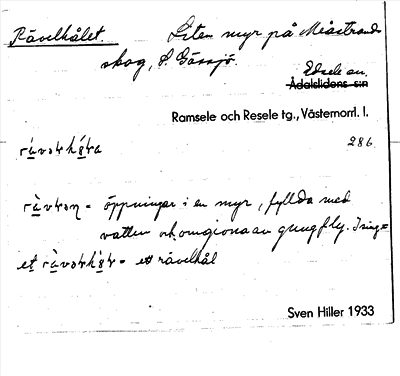 Rävelhålet. Liten myr på Miåstrands
skog, S. Gåssjö.
Edsele sn.
Ådalslidens s:n
Ramsele och Resele tg., Västernorrl. l.
286
= öppningar i en myr, fyllda med
vatten och omgivna av gungfly. I sing=
= ett rävelhål
Sven Hiller 1933